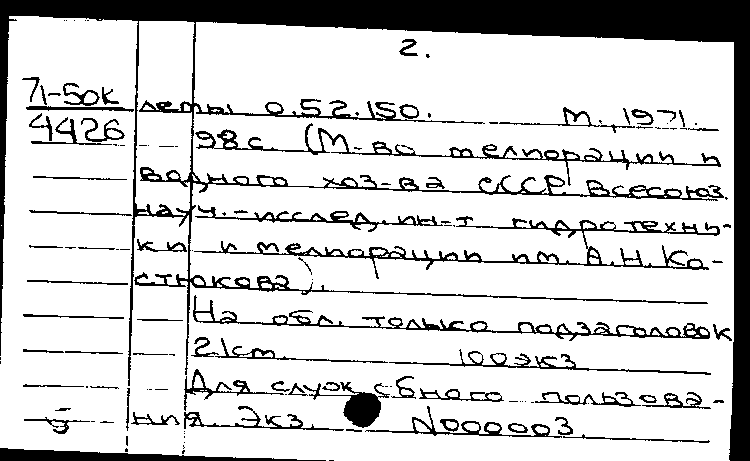 2.
71-50к леты 0.52.150. М., 1971.
4426 98с. (М-во мелиорации и
водного хоз-ва СССР. Всесоюз.
науч.-исслед. ин-т гидротехни-
ки и мелиорации им. А.Н. Ко-
стякова).
На обл. только подзаголовок
21cm. 100экз
Для служебного пользова-
ния. Экз. N000003.